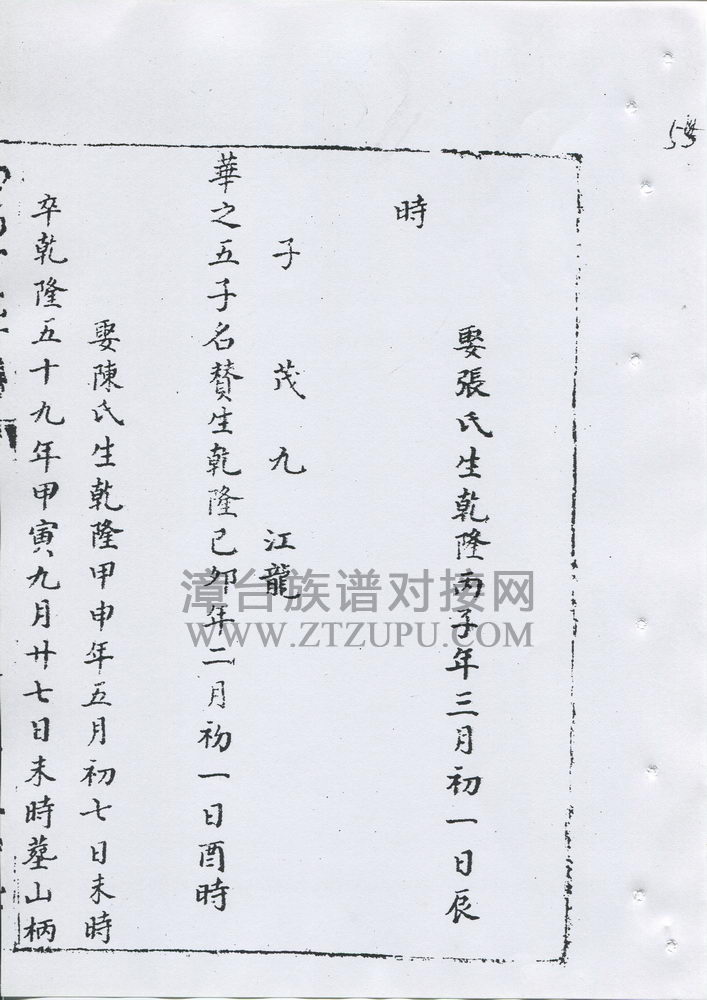 娶張氏生乾隆丙子年三月初一日辰
時
子 茂 九 江龍
華之五子名賛生乾隆己卯年二月初一日酉時
娶陳氏生乾隆甲申年五月初七日未時
卒乾隆五十九年甲寅九月廿七日未時墓山柄
漳台族谱对接网
WWW.ZTZUPU.COM